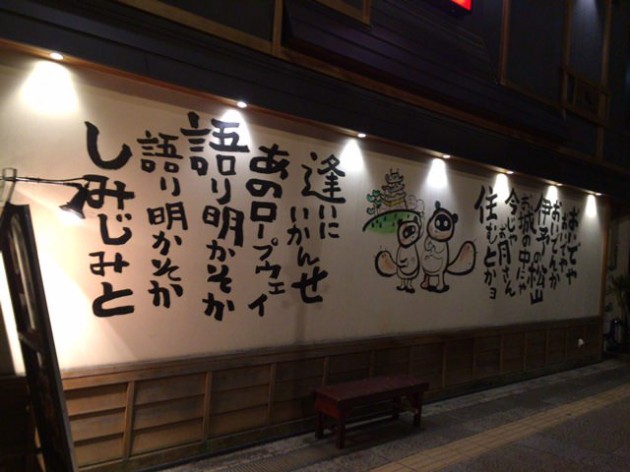 おいでや
おいでんか
伊予の松山
お城の中にゃ
今じゃお月さん
住むとかヨ
逢いにいかんせ
あのロープウェイ
語り明かそか
語り明かそか
しみじみと